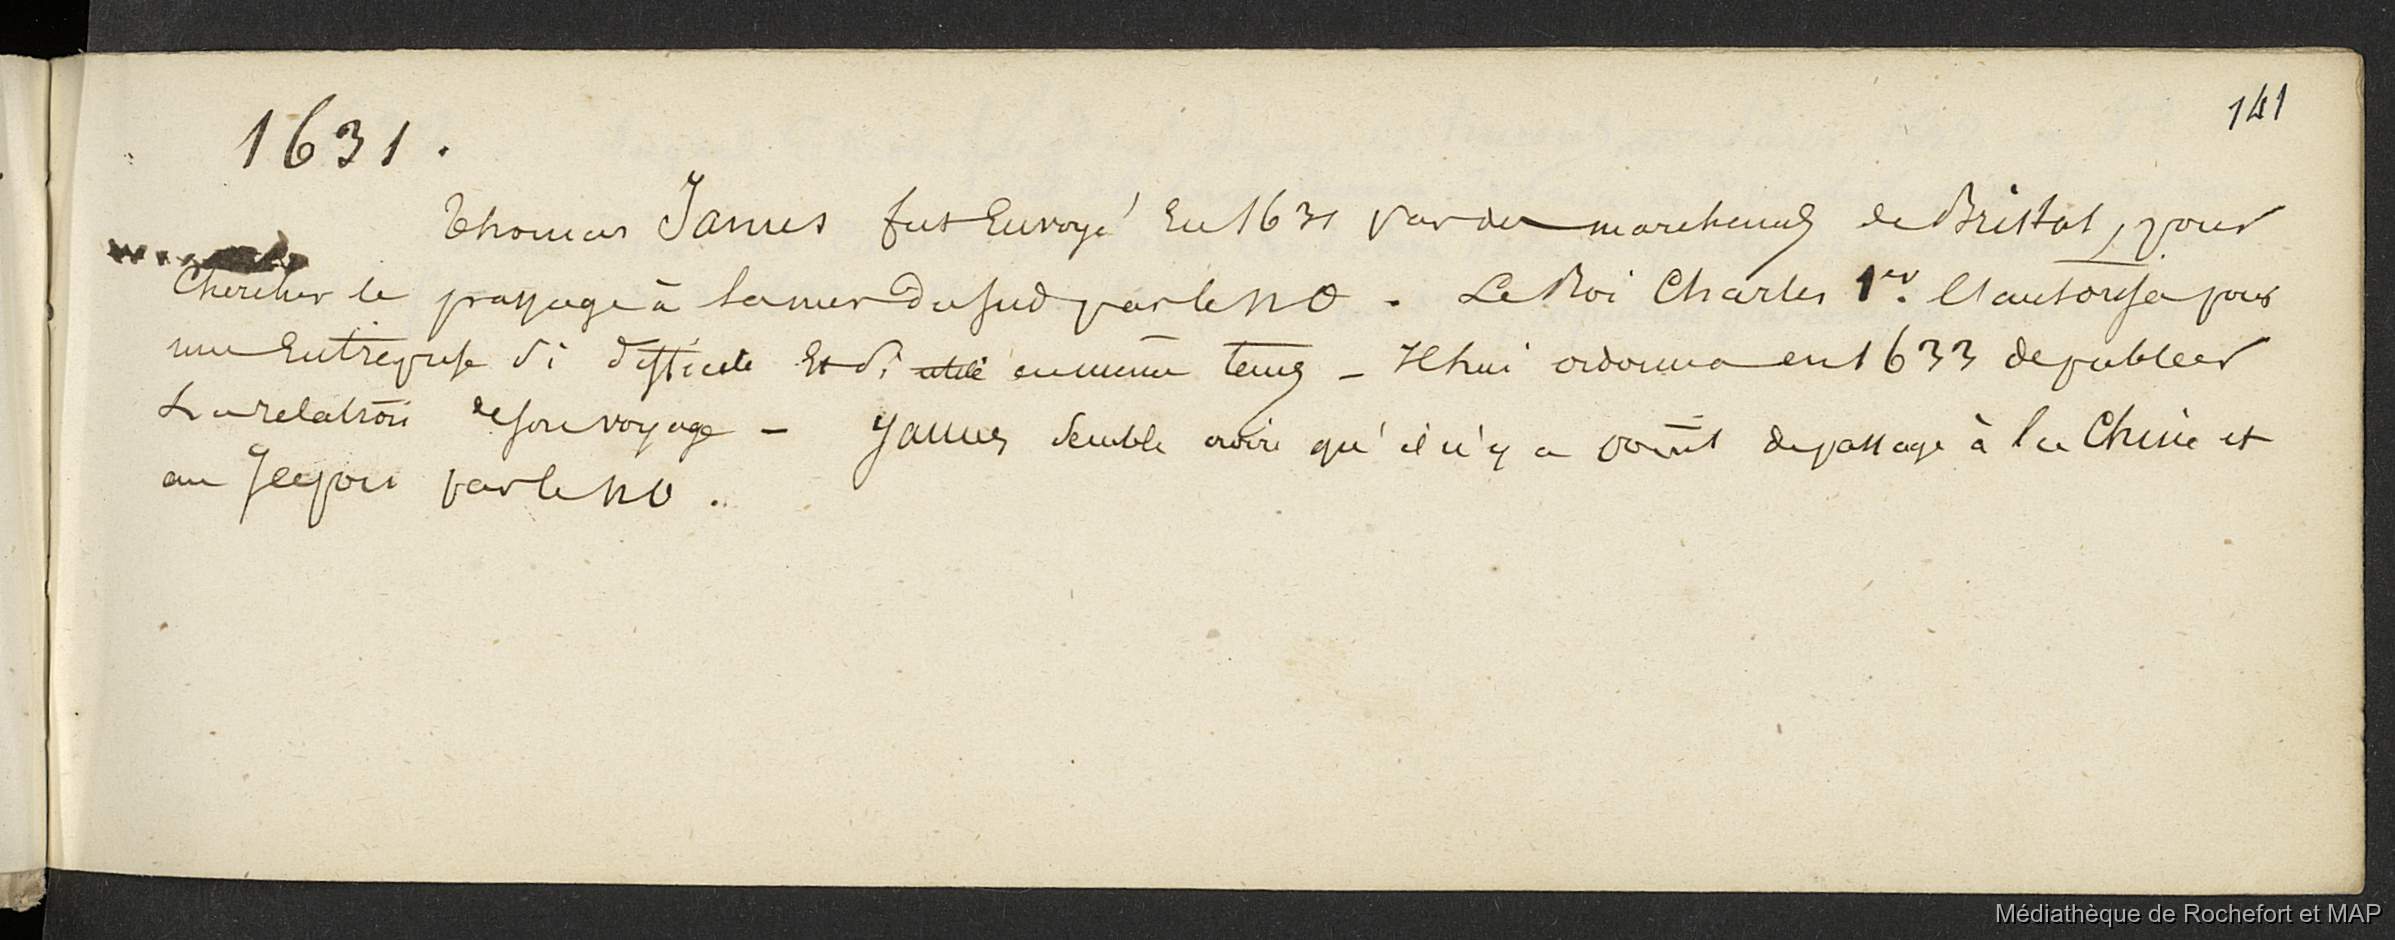 141
1631.
Thomas James fut Envoyé En 1631 par des marchands de Bristol, pour
Chercher le passage à la mer du sud par le NO. Le Roi Charles 1er. l'autorisa pour
une Entreprise si difficile Et si utile en même tems – Il lui ordonna en 1633 de publier
La relation de son voyage – James semble croire qu'il n'y a point de passage à la Chine et
au Japon par le NO.
Médiathèque de Rochefort et MAP